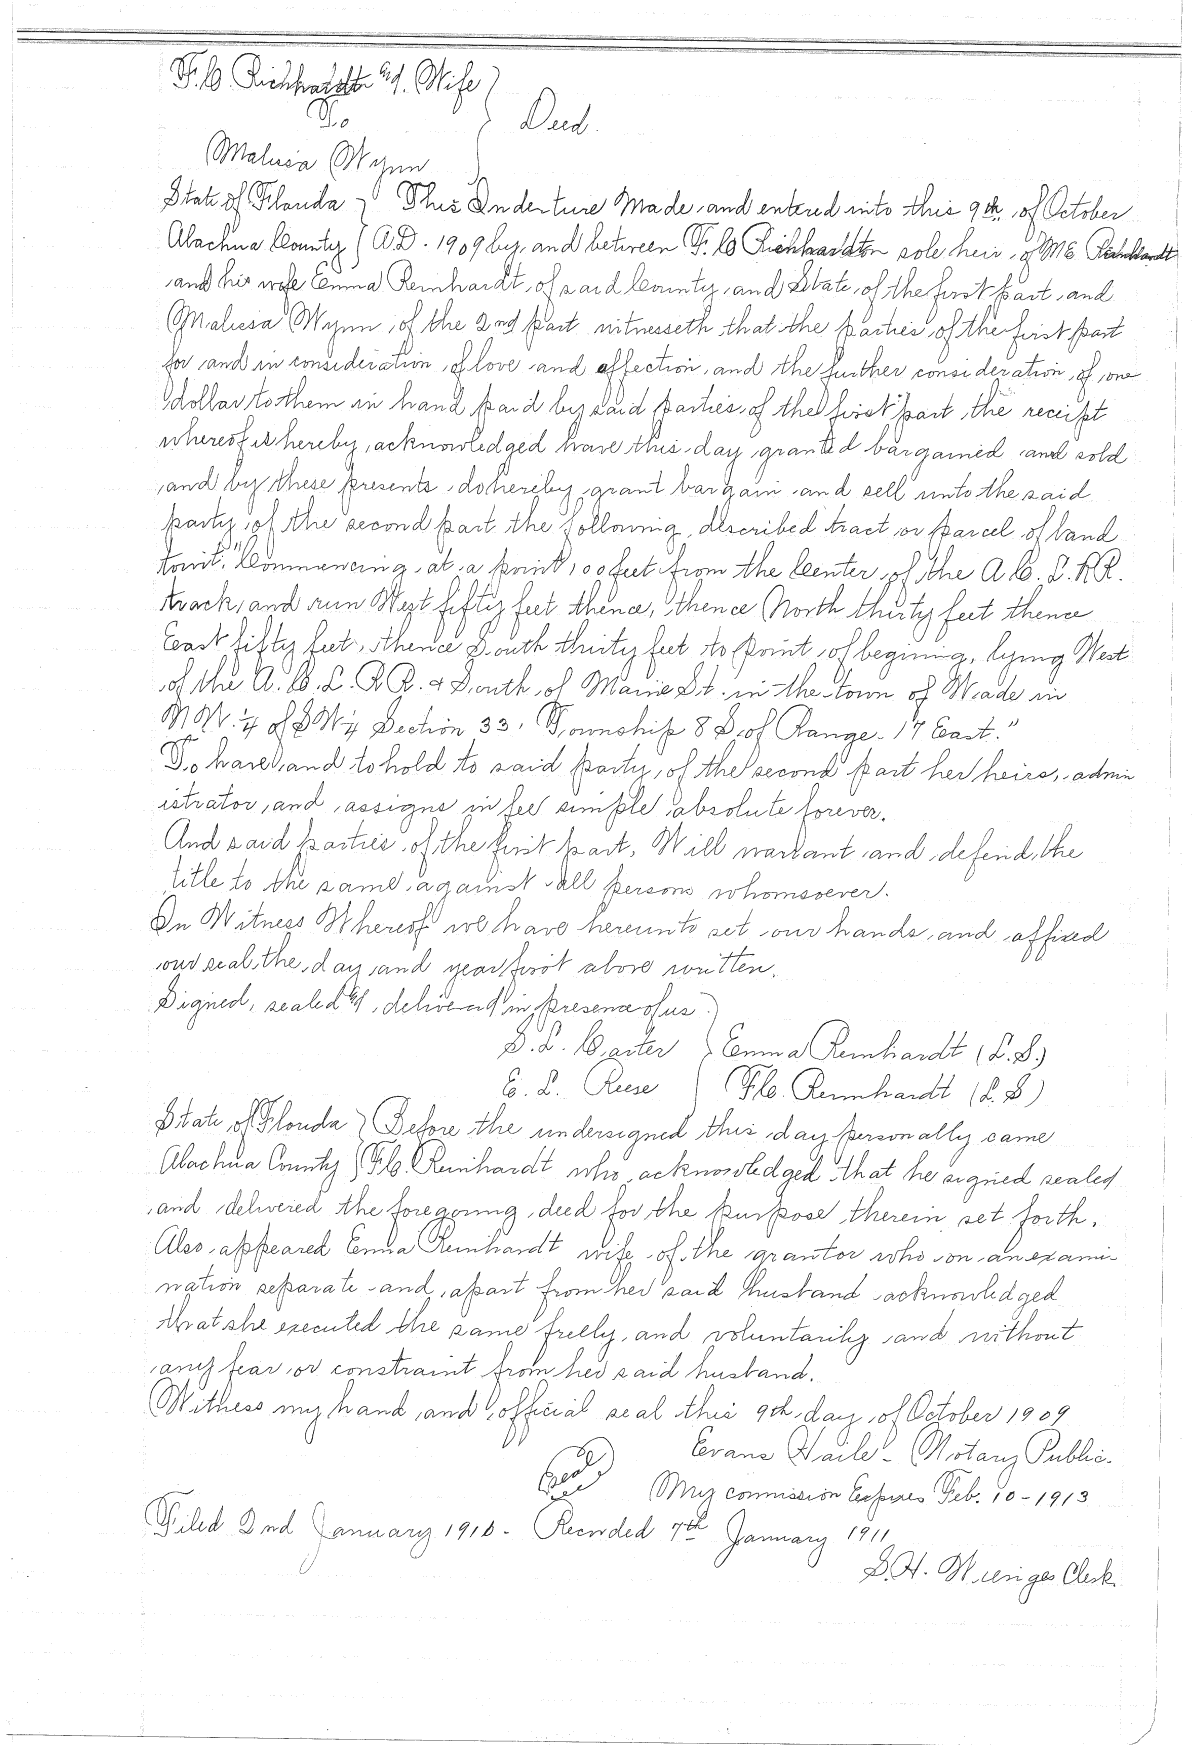 F. C. Richhardt & Wife
To
Deed.
Malissa Wynn
State of Florida } This Indenture Made and entered into this 9th of October
Alachua County } A.D. 1909 by and between F. C. sole heir of M E
and his wife Emma Reinhardt of said County and State of the first part and
Malissa Wynn of the 2nd part witnesseth that the parties of the first part
for and in consideration of love and affection and the further consideration of one
dollar to them in hand paid by said parties of the first part the receipt
whereof is hereby acknowledged have this day granted bargained and sold
and by these presents do hereby grant bargain and sell unto the said
party of the second part the following described tract or parcel of land
towit: "Commencing at a point 100 feet from the Center of the A. C. L. R R.
track, and run West fifty feet thence, thence North thirty feet thence
East fifty feet, thence South thirty feet to point of begining, lying West
of the A. C. L. R R. & South of Marie St. in the town of Wade in
N W. 1/4 of S W 1/4 Section 33. Township 8 S. of Range 17 East."
To have and to hold to said party of the second part her heirs, admin
istrator, and assigns in fee simple absolute forever.
And said parties of the first part, Will warrant and defend the
title to the same against all persons whomsoever.
In Witness Whereof we have hereunto set our hands and affixed
our seal the day and year first above written.
Signed, sealed & delivered in presence of us }
S. L. Carter } Emma Reinhardt (L.S.)
E. L. Reese } F C. Reinhardt (L.S)
State of Florida } Before the undersigned this day personally came
Alachua County } F C. Reinhardt who acknowledged that he signed sealed
and delivered the foregoing deed for the purpose therein set forth.
Also appeared Emma Reinhardt wife of the grantor who on an exami-
nation separate and apart from her said husband acknowledged
that she executed the same freely and voluntarily and without
any fear or constraint from her said husband.
Witness my hand and official seal this 9th day of October 1909
Evans Haile - Notary Public.
Seal
My commission Expires Feb. 10 - 1913
Filed 2nd January 1910 - Recorded 7th January 1911
S. H. Wienges Clerk